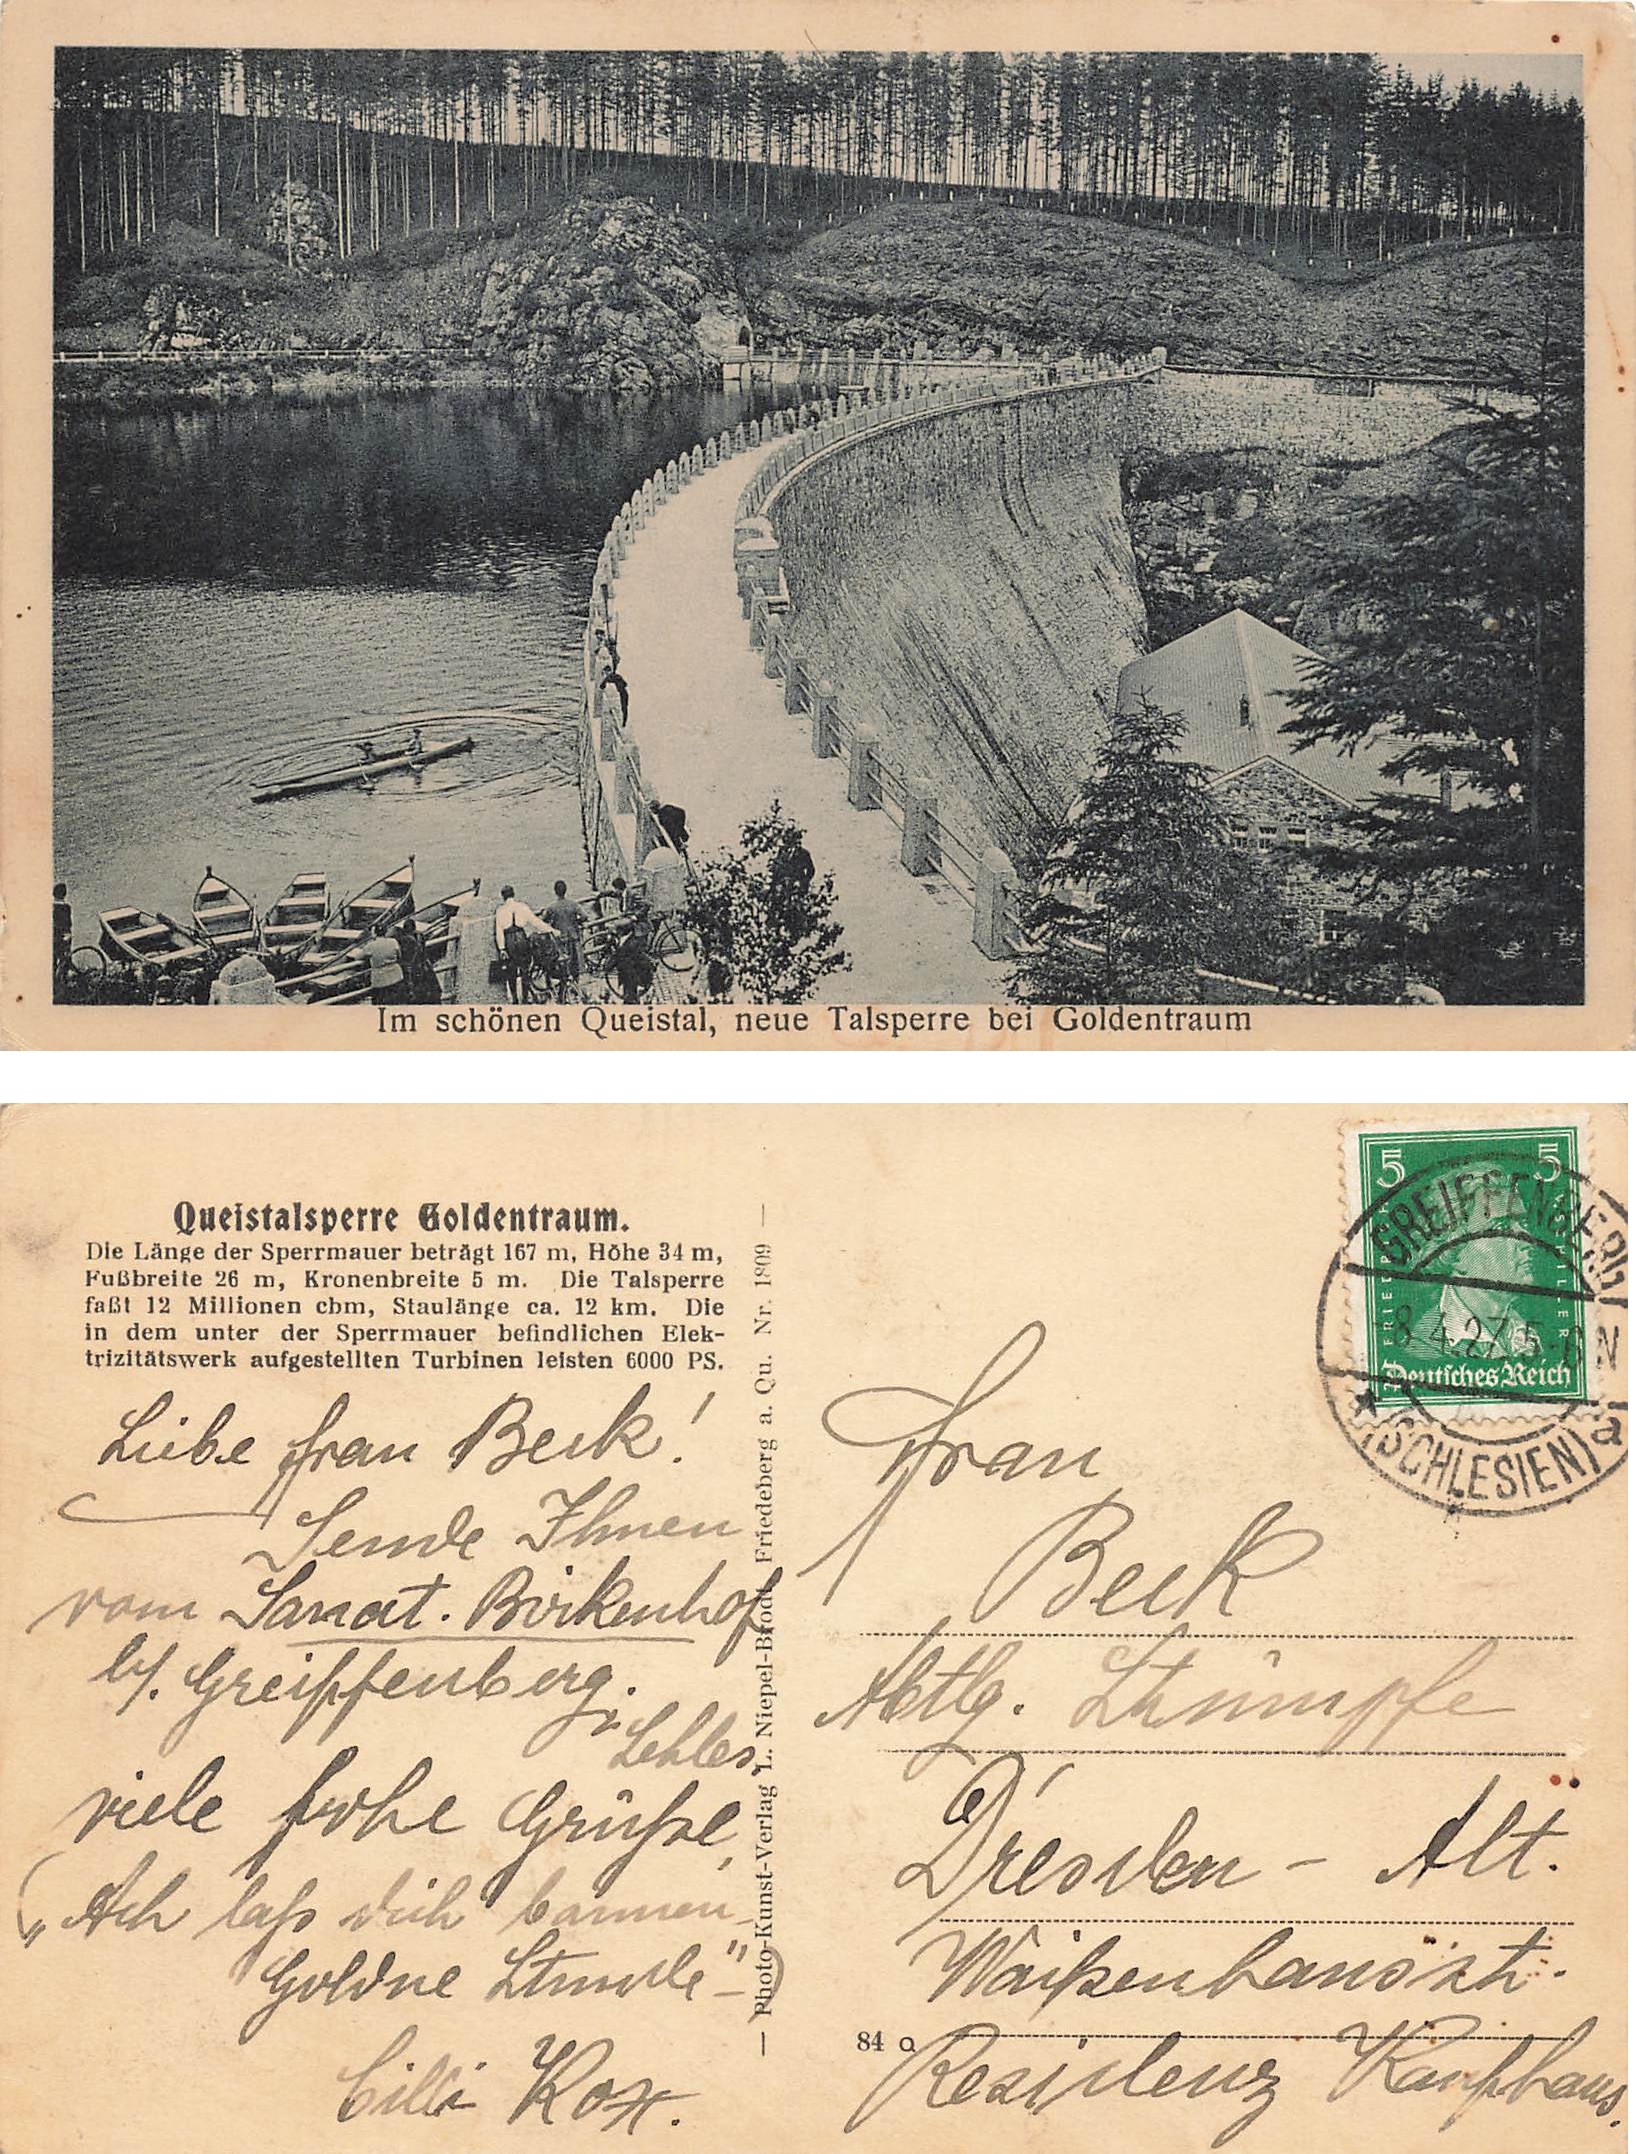 Im schönen Queistal, neue Talsperre bei Goldentraum
Queistalsperre Goldentraum.
Die Länge der Sperrmauer beträgt 167 m, Höhe 34 m,
Fußbreite 26 m, Kronenbreite 5 m. Die Talsperre
faßt 12 Millionen cbm, Staulänge ca. 12 km. Die
in dem unter der Sperrmauer befindlichen Elek-
trizitätswerk aufgestellten Turbinen leisten 6000 PS.
Liebe Frau Beck!
Sende Ihnen
vom Sanat. Birkenhof
b/. Greiffenberg.
i. Schles.
viele frohe Grüße,
(„Ach laß dich bannen
Goldne Stunde"-)
Cilli Kox.
— Photo-Kunst-Verlag L. Niepel-Brodt, Friedeberg a. Qu. Nr. 1809 —
5 5
FRIEDRICH V. SCHILLER
Deutsches Reich
GREIFFENBERG
8.4.27.5-6 N
* (SCHLESIEN) a
Frau
Beck
Abtlg. Strümpfe
Dresden - Alt.
Waisenhausstr.
84 Q
Residenz Kaufhaus.